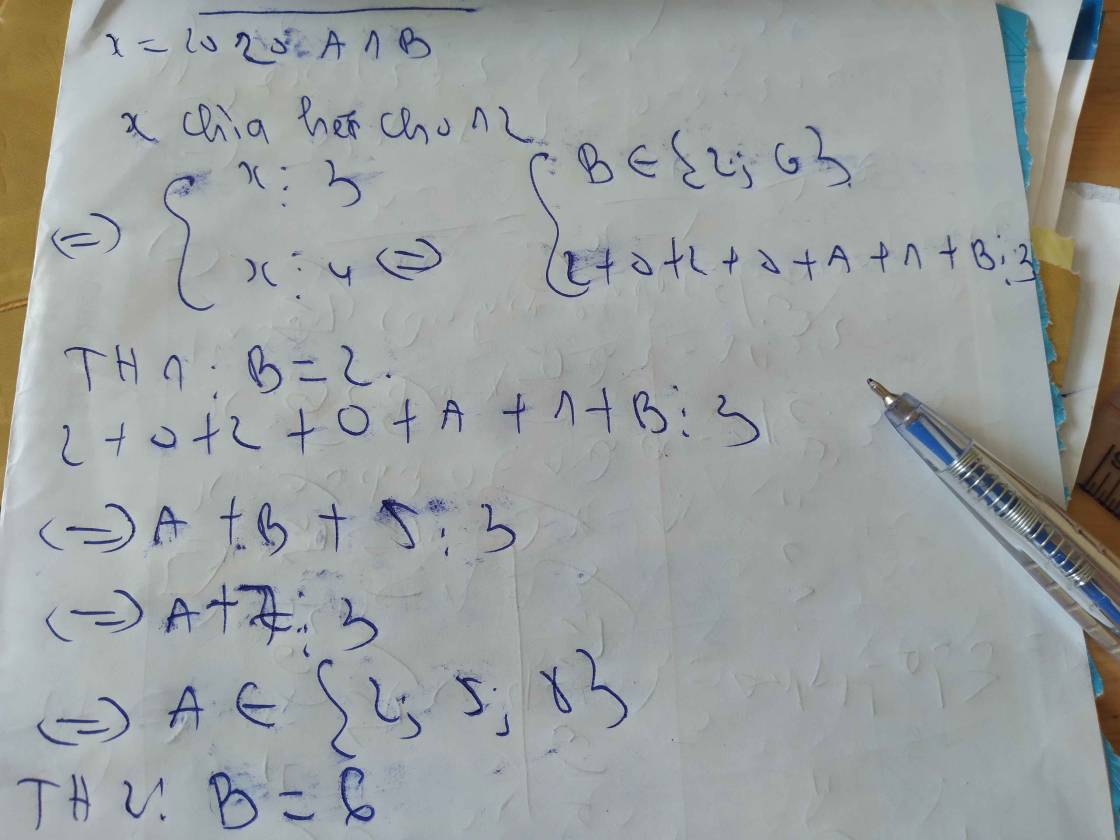 x = 2020 A 1 B
x chia hết cho 12
<=> { x ⋮ 3 { B ∈ {2; 6}
x ⋮ 4 <=> 2 + 0 + 2 + 0 + A + 1 + B ⋮ 3
TH 1 : B = 2.
2 + 0 + 2 + 0 + A + 1 + B ⋮ 3
<=> A + B + 5 ⋮ 3
<=> A + 7 ⋮ 3
<=> A ∈ {2; 5; 8}
TH 2: B = 6